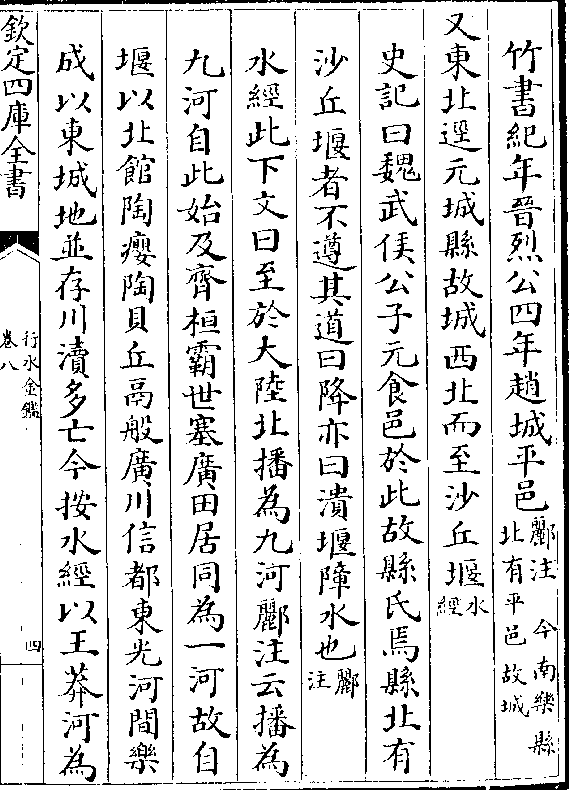 竹書紀年晉烈公四年趙城平邑酈注今南樂縣北有平邑故城
又東北逕元城縣故城西北而至沙丘堰水經
史記曰魏武侯公子元食邑於此故縣氏焉縣北有
沙丘堰者不遵其道曰降亦曰潰堰障水也酈注
水經此下文曰至於大陸北播為九河酈注云播為
九河自此始及齊桓霸世塞廣田居同為一河故自
堰以北館陶癭陶貝丘鬲般廣川信都東光河間樂
成以東城地並存川瀆多亡今按水經以王莽河為
欽定四庫全書
行水金鑑
卷八
四